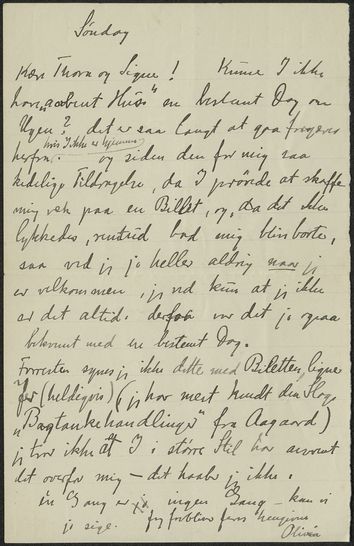 Søndag
Kære Thora og Signe! Kunne I ikke
have „aabent Huus" en bestemt Dag om
Ugen? det er saa langt at gaa forgæves
hvis I ikke er hjemme
herfra. og siden den for mig saa
kedelige Tildragelse, da I prøvede at skaffe
mig væk paa en Billet, og, da det ikke
lykkedes, rentud bad mig blive borte,
saa ved jeg jo heller aldrig naar jeg
er velkommen, jeg ved kun at jeg ikke
er det altid. derfor var det jo ogsaa
bekvemt med en bestemt Dag.
Forresten synes jeg ikke dette med Billetten, ligner
Jer (heldigvis) (jeg har mest kendt den Slags
„Bagtankehandlinger" fra Aagaard)
jeg tror ikke at I i større Stil har anvendt
det overfor mig — det haaber jeg ikke.
én Gang er jo ingen Gang — kan vi
jo sige. Jeg forbliver Jeres hengivne
Olivia